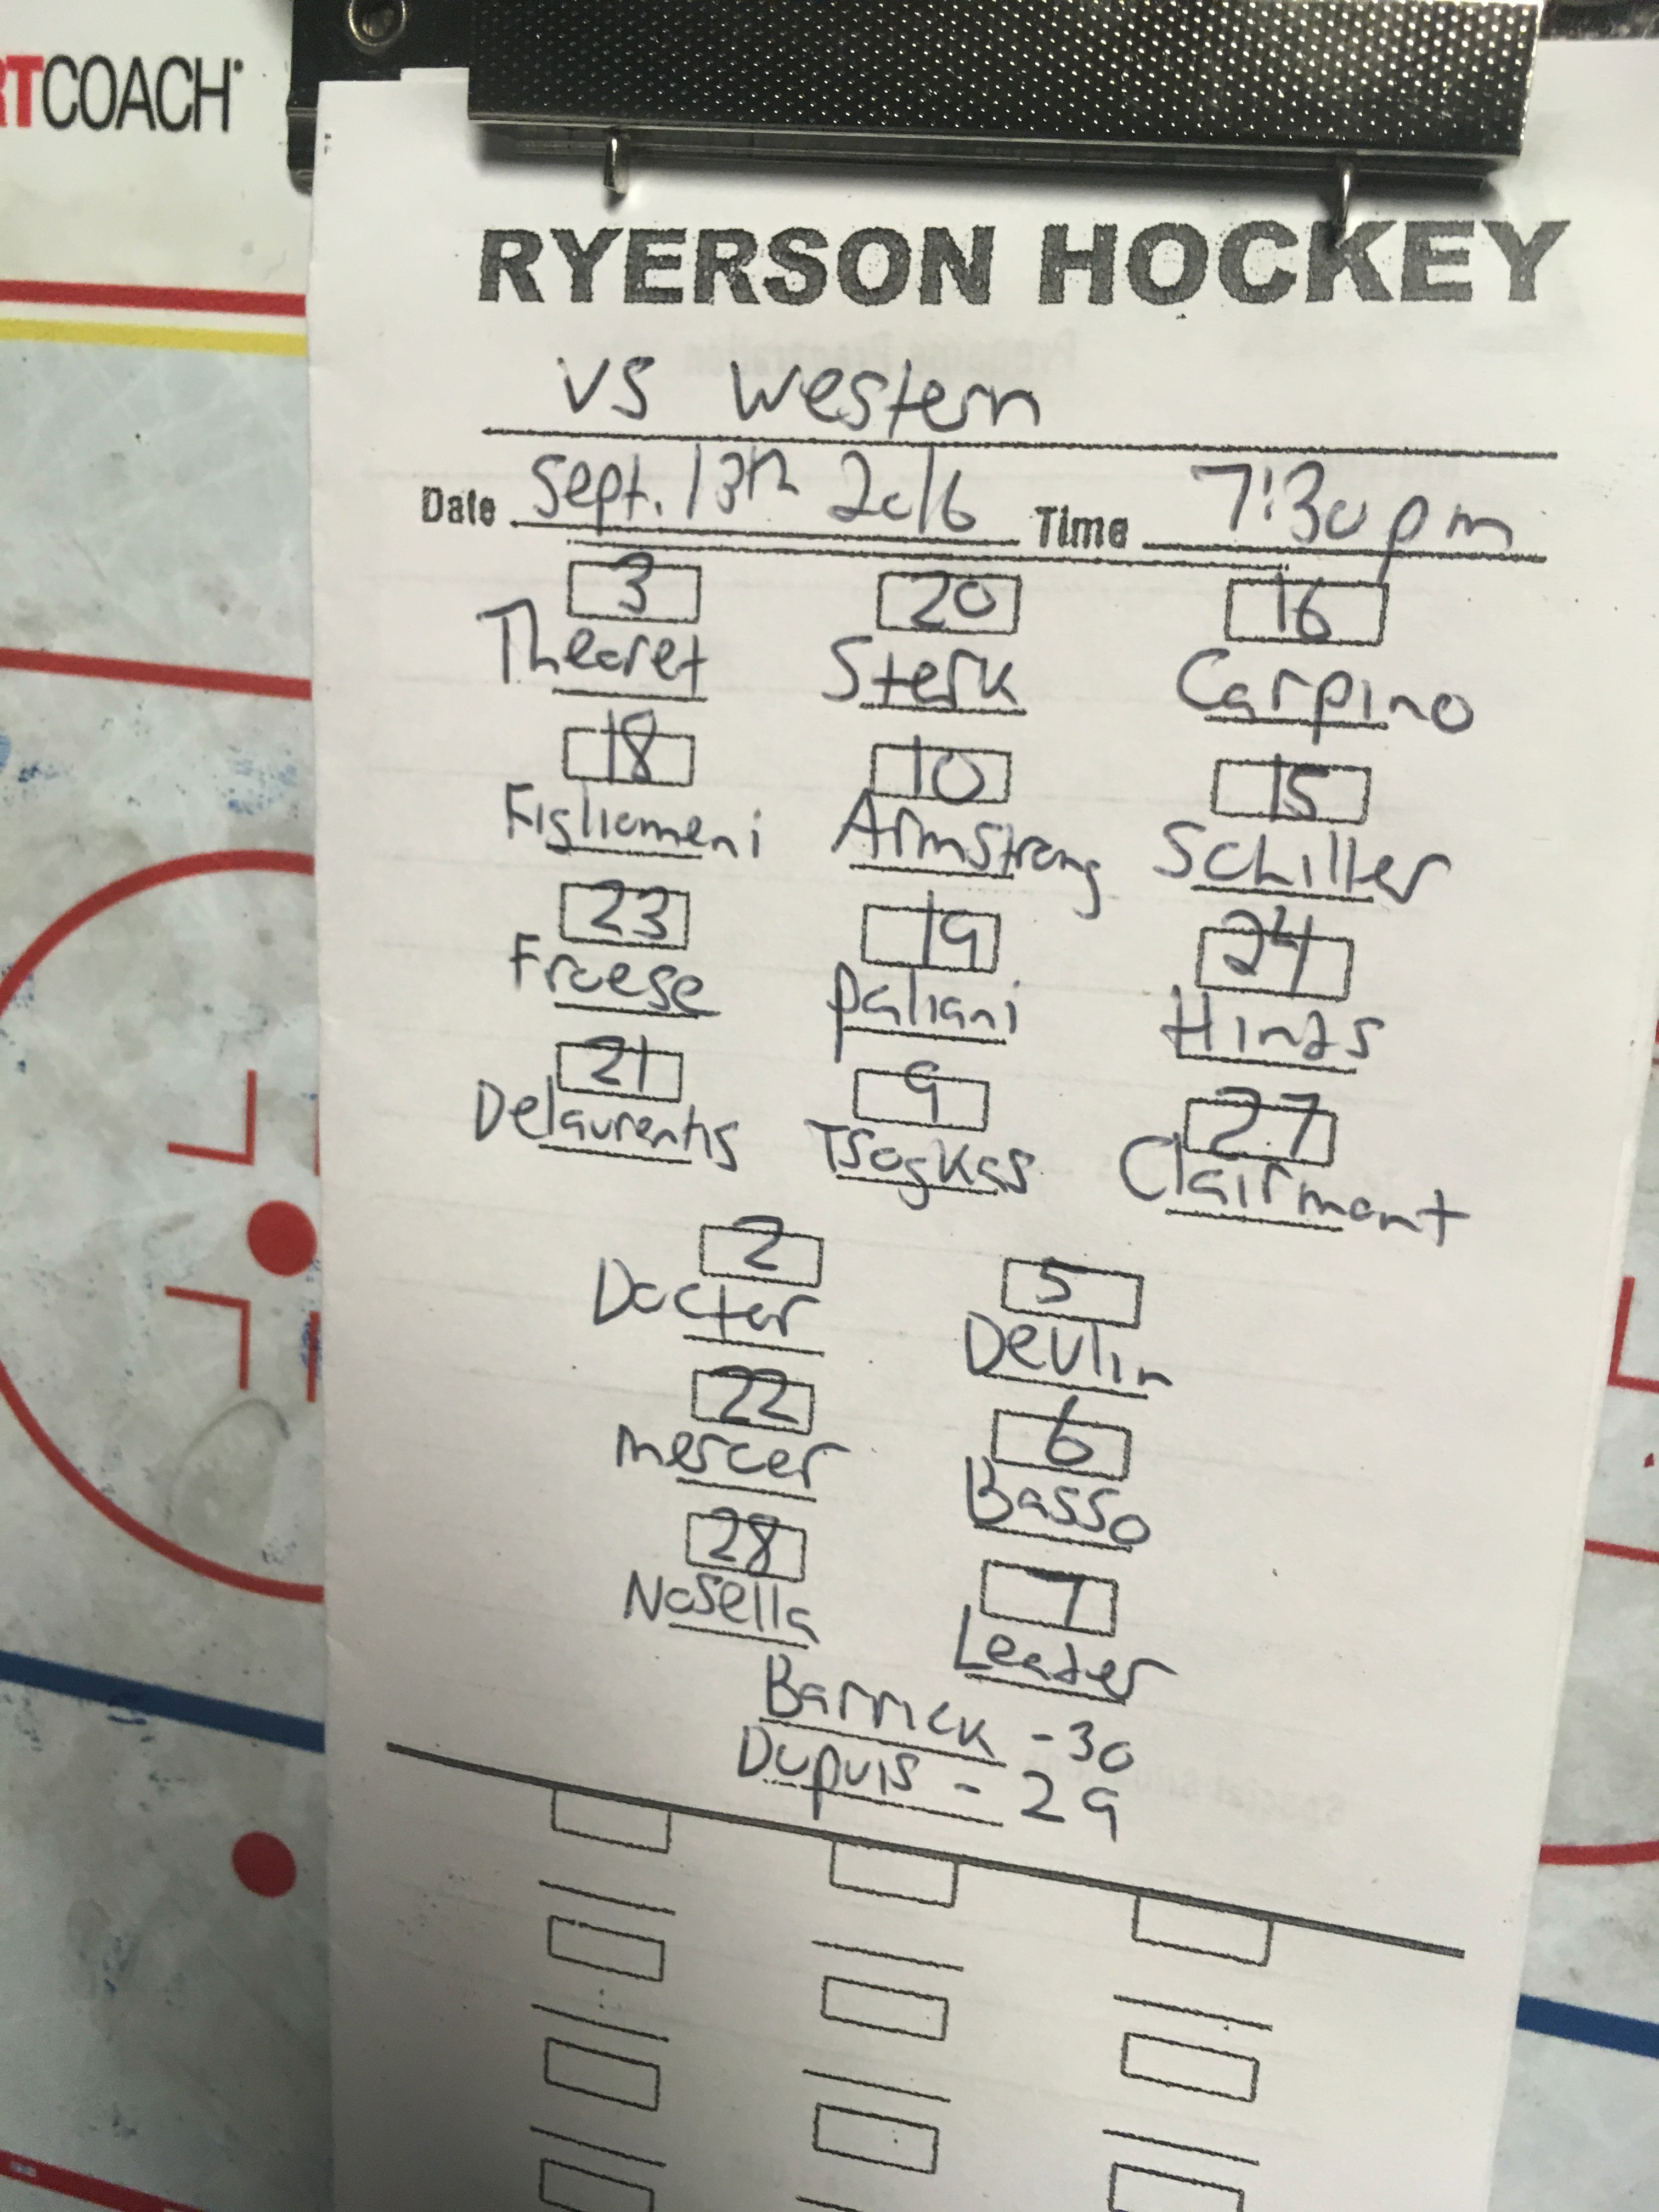 RTCOACH
RYERSON HOCKEY
vs Western
Date Sept. 13th 2016 Time 7:30pm
3 20 16
Theoret Sterk Carpino
18 10 15
Figliomeni Armstrong Schiller
23 19 24
Froese Paliani Hinds
21 9 27
Delaurentis Tsogkas Clairmont
2 5
Doctor Devlin
22 6
Mercer Basso
28 7
Nosella Leader
Barrick - 30
Dupuis - 29